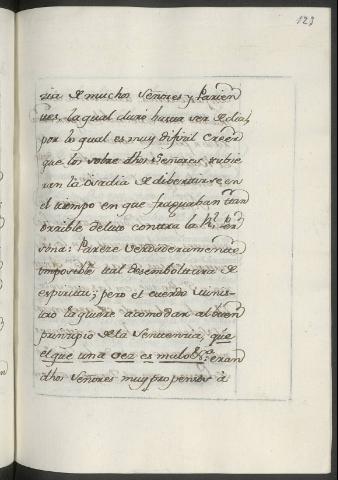 123
cia de muchos Señores, y Parien
tes, la qual duró hasta ser de dia,
por lo qual es muy dificil creèr
que los sobre dhos Señores tubie
ran la osadia de dibertirse en
el tiempo en que fraguaban tan
orrible delito contra la Rl. Per
sona: Pareze verdaderamente
imposible tal desemboltura de
espiritu; pero el cuerdo Minis-
tro la quiere acomodar al buen
principio de la Sentencia, que
el que una vez es malo &a. eran
dhos Señores muy propensos à